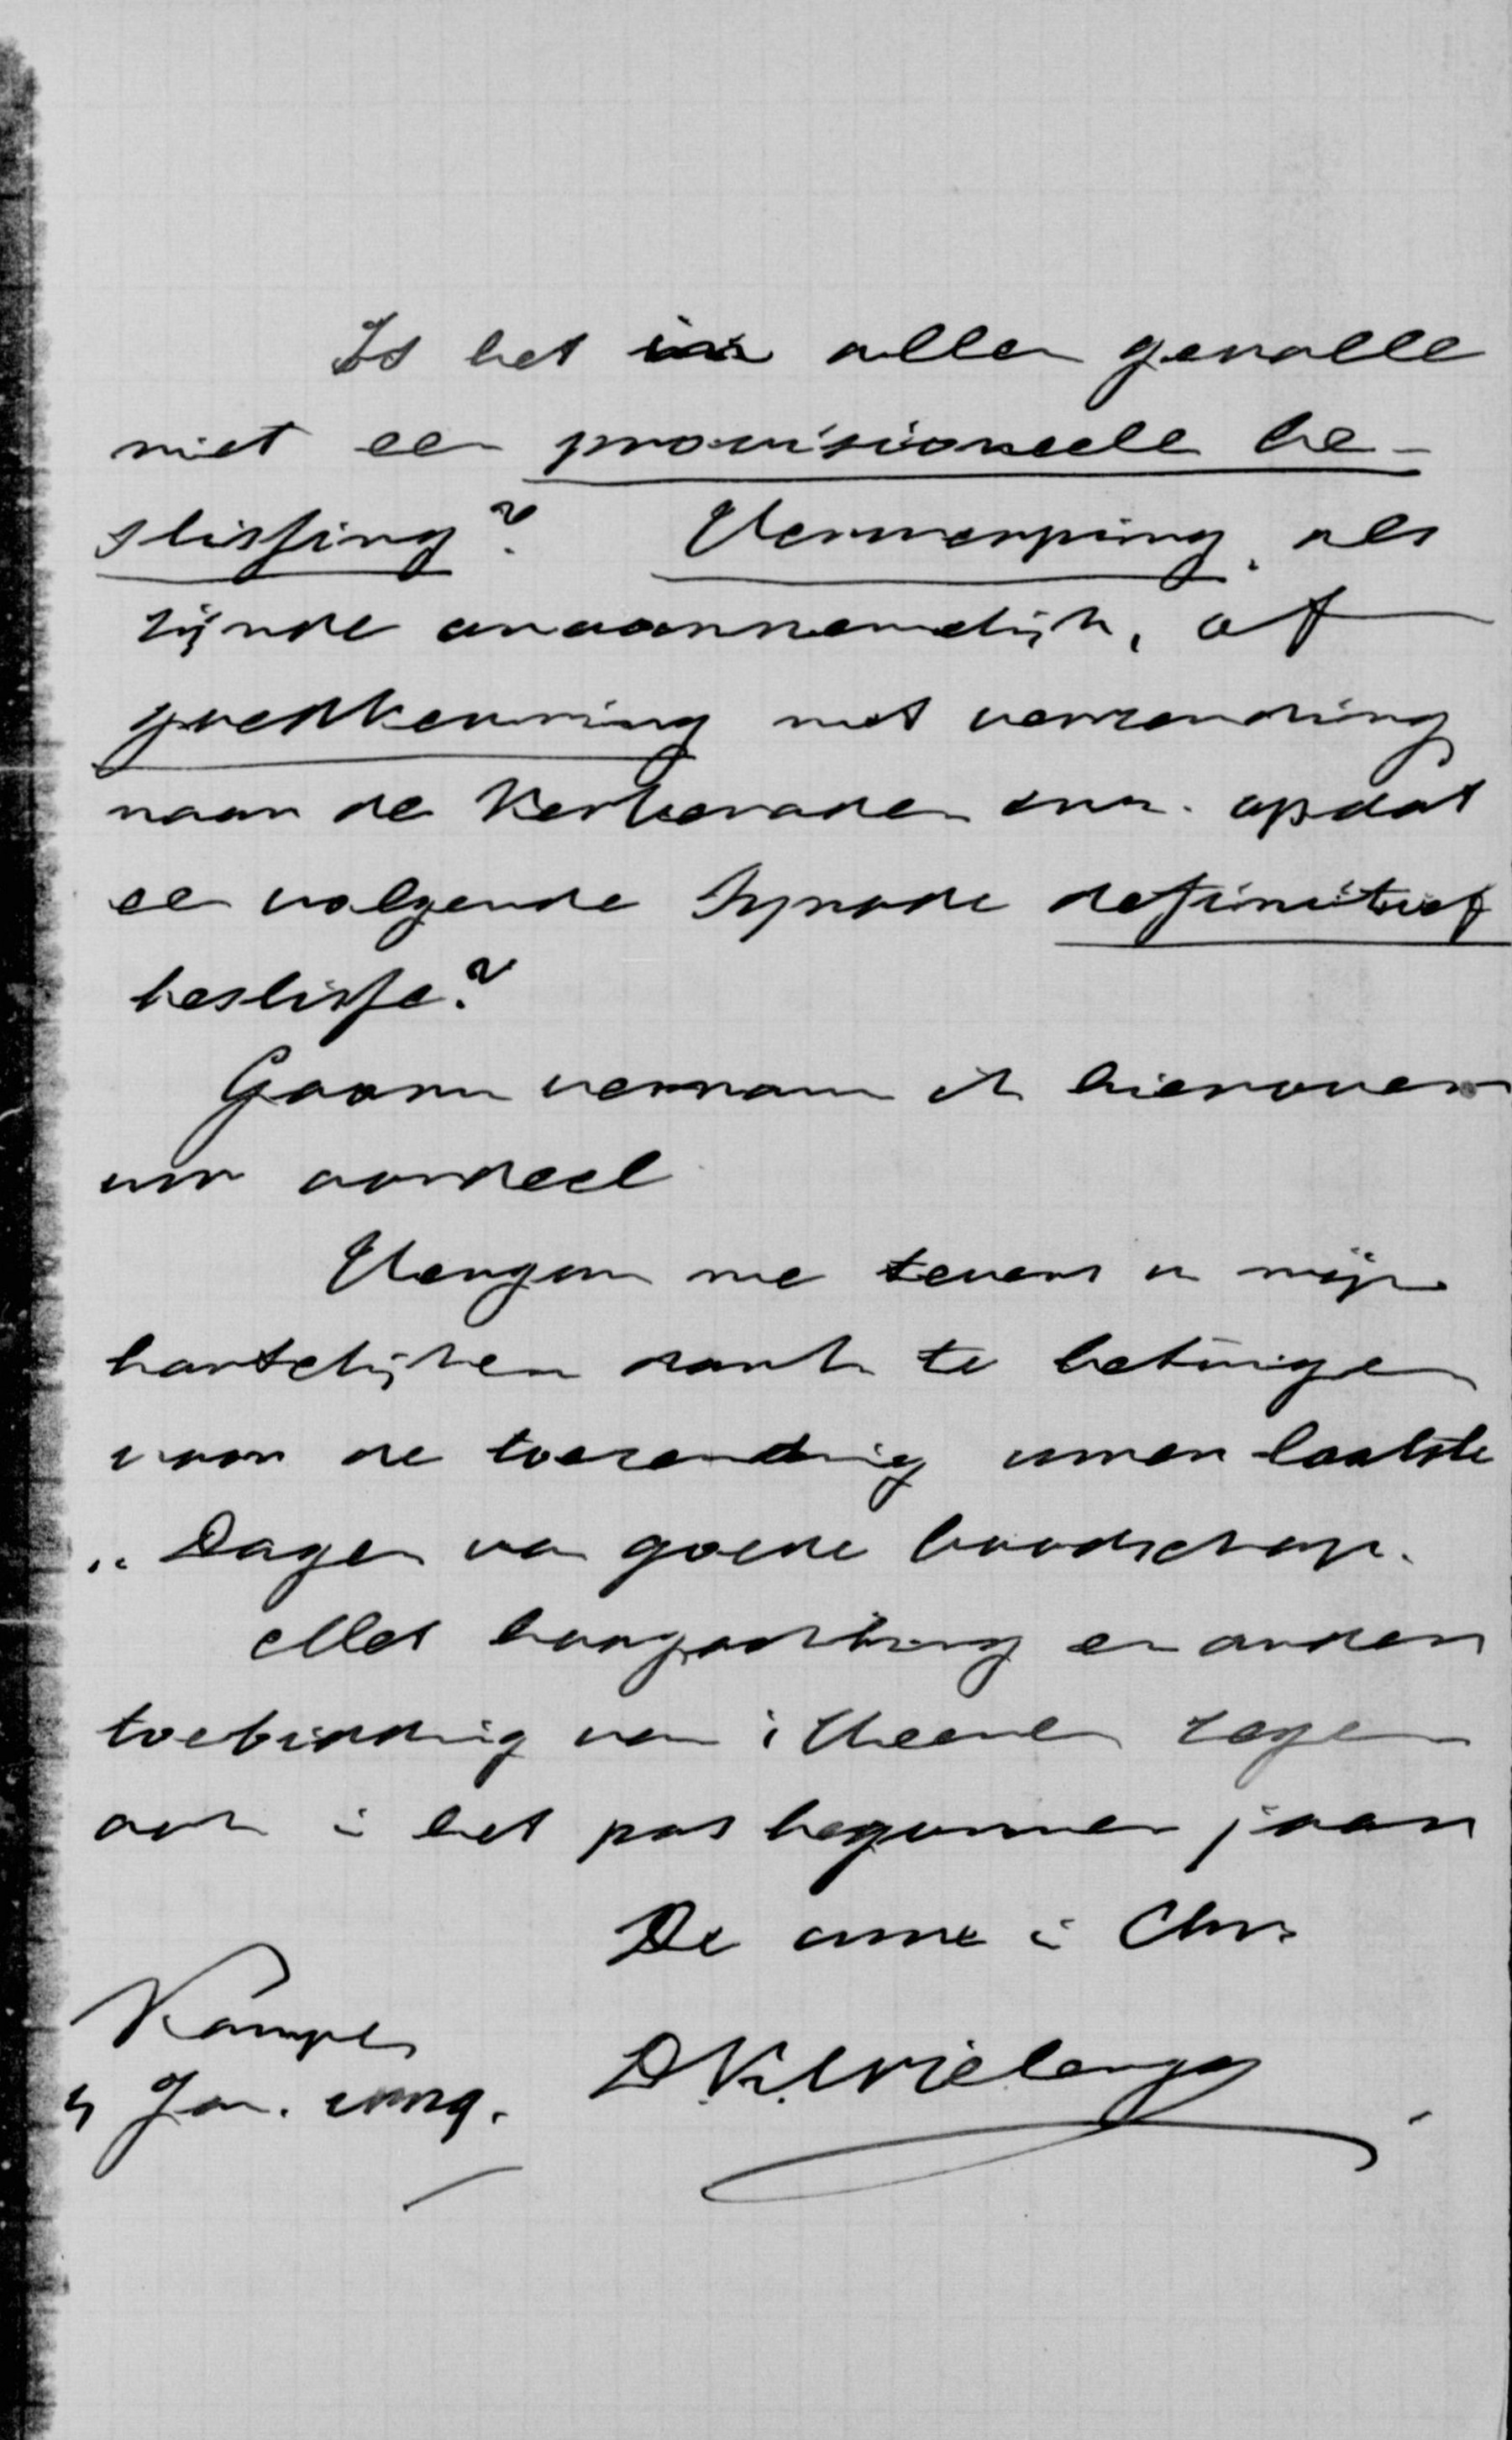 Is het in allen gevalle
niet een provisioneele be-
slissing? Verwerping, als
zijnde onaannemelijk, of
goedkeuring met verzending
naar de Kerkeraden enz. opdat
een volgende Synode definitief
beslisse?
Gaarne vernam ik hierover
uw oordeel
Vergun me tevens u mijn
hartelijken dank te betuigen
voor de toezending uwer laatste
„Dagen van goede boodschap.
Met hoogachting en onder
toebidding van 's Heeren zegen
ook in het pas begonnen jaar
De uwe in Chr.
Kampen
D.K. Wielenga
4 Jan.